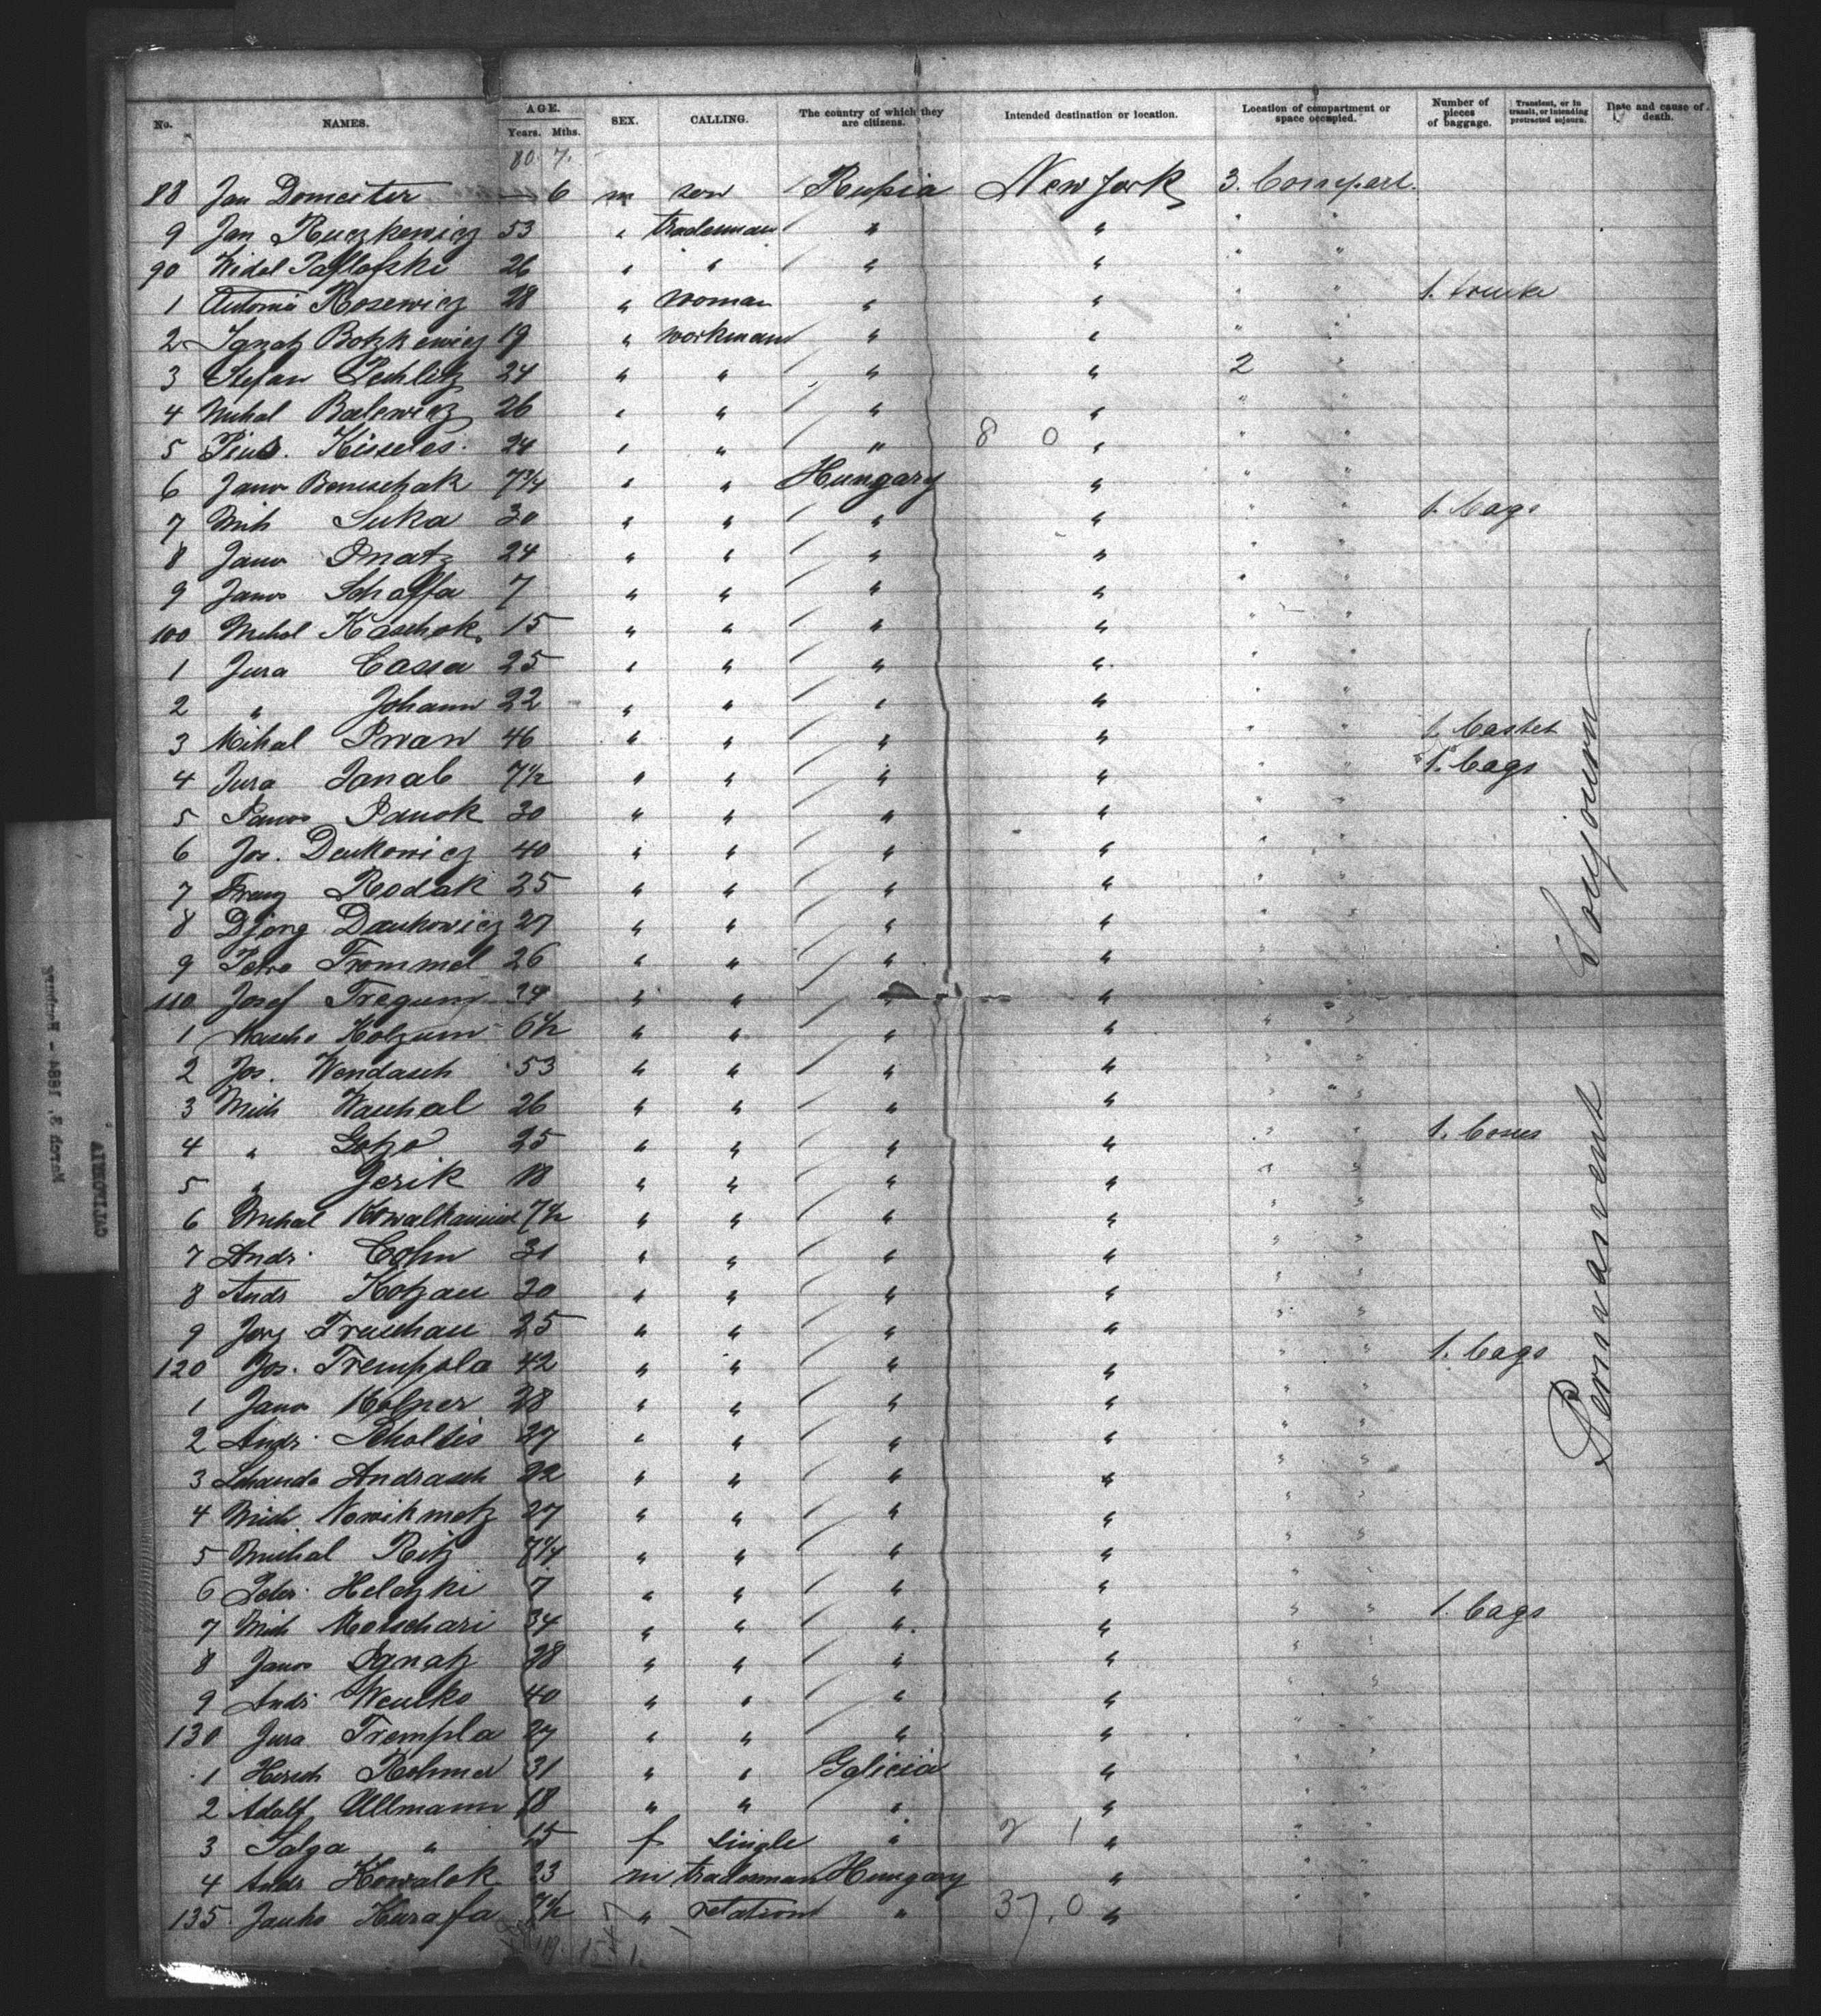 No. NAMES. AGE. Years. Mths. SEX. CALLING. The country of which they are citizens. Intended destination or location. Location of compartment or space occupied. Number of pieces of baggage. Transient, or in transit, or intending protracted sojourn. Date and cause of death.
80. 7.
88 Jan Domeiter — 6 m son Rußia New York 3. Compart.
9 Jan Ruczkewicz 53 " tradesman " " " "
90 26 " " " " " "
1 Antonia Rosewicz 28 " woman " " " " 1. trunk
2 Ignatz Botzkewicz 19 " workman " " " "
3 Stefan 24 " " " " 2 "
4 Mihal Balewicz 26 " " " " " "
5 Pius. Kisseles. 24 " " " 8 0 " " "
6 Janos Beneschak 7¾ " " Hungary " " "
7 Mih Suka 30 " " " " " " 1. bags
8 Janos 24 " " " " " "
9 Janos Schaffa 7 " " " " " "
100 Mihal Kaschok. 15 " " " " " "
1 Jura Cassa 25 " " " " " "
2 " Johann 22 " " " " " "
3 Mikal Iwan 46 " " " " " " 1.
4 Jura Janab 7½ " " " " " " 1. bags
5 Janos 30 " " " " " "
6 Jos. Denkowicz 40 " " " " " "
7 Franz Rodak 25 " " " " " "
8 Dankowicz 27 " " " " " "
9 Petro Trommel 26 " " " " " "
110 Josef 34 " " " " " "
1 Wascho Kolzum 6½ " " " " " "
2 Jos. Wendasch 53 " " " " " "
3 Mich Wauhal 26 " " " " " "
4 " 25 " " " " " " 1.
5 " Jerik 18 " " " " " "
6 Mihal 7½ " " " " " "
7 Andr. Cohn 31 " " " " " "
8 Andr Kotzau 30 " " " " " "
9 Jorg 25 " " " " " "
120 Jos. Trempola 42 " " " " " " 1. bags
1 Janos Kolner 28 " " " " " "
2 Andr. Scholtis 27 " " " " " "
3 Andrasch 22 " " " " " "
4 Mich Nowikmetz 27 " " " " " "
5 Michal Ritz 7¼ " " " " " "
6 Peter. Heletzki 7 " " " " " "
7 Mich Motschari 34 " " " " " " 1. bags
8 Janos Ignatz 28 " " " " " "
9 Andr. Wenko 40 " " " " " "
130 Jura Trempla 27 " " " " " "
1 Hersch Rohmer 31 " " Galicia " " "
2 Adolf Ullmann 18 " " " " " "
3 Salga " 15 f single " 2 1 " " "
4 Andr Kowalok 23 m tradesman Hungary " " "
135. Janko Harafa 7½ " relation " 37.0 " " "
Permasnent Soujourn
CATALONIA
March 3, 1884 - Hamburg